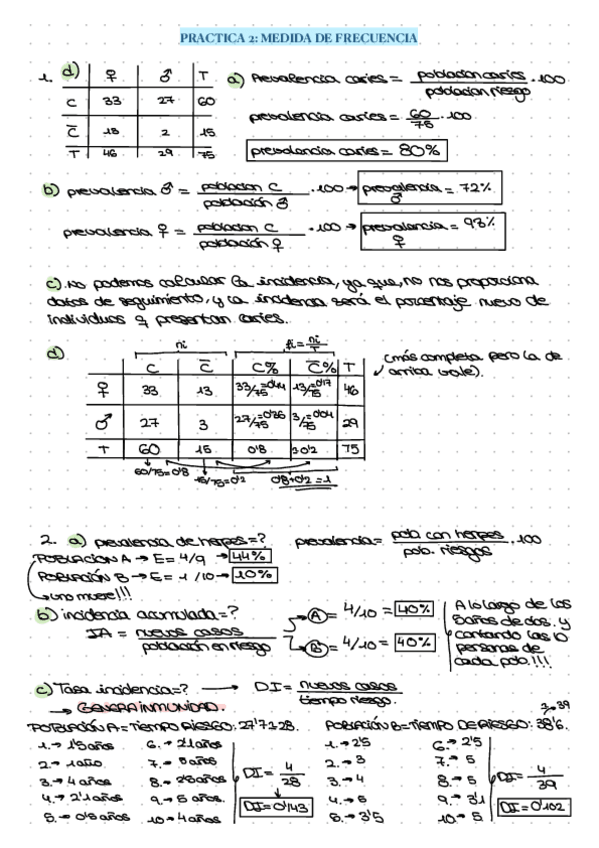 PRACTICA 2: MEDIDA DE FRECUENCIA
1. d) ♀ ♂ T
C 33 27 60
C̅ 13 2 15
T 46 29 75
a) Prevalencia caries = población caries / población riesgo · 100
prevalencia caries = 60/75 · 100
prevalencia caries = 80%
b) prevalencia ♂ = población C / población ♂ · 100 → prevalencia ♂ = 72%
prevalencia ♀ = población C / población ♀ · 100 → prevalencia ♀ = 93%
c) No podemos calcular la incidencia, ya que, no nos proporciona
datos de seguimiento, y la incidencia será el porcentaje nuevo de
individuos q presentan caries.
d) ni fi = ni/T
C C̅ C% C̅% T
♀ 33 13 33/75=0'44 13/75=0'17 46
♂ 27 3 27/75=0'36 3/75=0'04 29
T 60 15 0'8 0'2 75
60/75=0'8 15/75=0'2 0'8+0'2=1
(más completa pero la de
arriba vale).
2. a) prevalencia de herpes=? prevalencia = pob. con herpes / pob. riesgos · 100
POBLACIÓN A → E= 4/9 → 44%
POBLACIÓN B → E= 1/10 → 10%
uno muere!!!
b) incidencia acumulada=?
IA = nuevos casos / población en riesgo
A = 4/10 = 40%
B = 4/10 = 40%
A lo largo de los
5 años de dos. y
contando las 10
personas de
cada pob.!!!
c) Tasa incidencia=? → DI = nuevos casos / tiempo riesgo.
→ GENERA INMUNIDAD.
POBLACIÓN A = TIEMPO RIESGO: 27'7≈28.
1. → 1'5 años 6. → 2'1 años
2. → 1 año 7. → 5 años
3. → 4 años 8. →
4. → 2'1 años 9. → 5 años
5. → 0'5 años 10. → 4 años
DI = 4/28
DI = 0'143
POBLACIÓN B = TIEMPO DE RIESGO: 38'6. ≈ 39
1. → 2'5 6. → 2'5
2. → 3 7. → 5
3. → 4 8. → 5
4. → 5 9. → 3'1
5. → 3'5 10. → 5
DI = 4/39
DI = 0'102